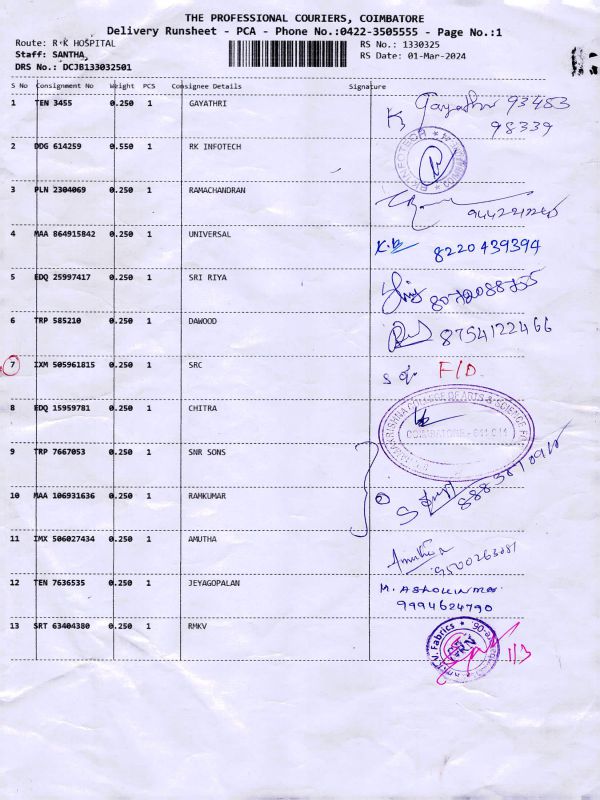 THE PROFESSIONAL COURIERS, COIMBATORE
Delivery Runsheet - PCA - Phone No.:0422-3505555 - Page No.:1
Route: R K HOSPITAL
RS No.: 1330325
Staff: SANTHA,
RS Date: 01-Mar-2024
DRS No.: DCJB133032501
S No Consignment No Weight PCS Consignee Details Signature
1 TEN 3455 0.250 1 GAYATHRI
K Gayathri 93453
98339
2 DDG 614259 0.550 1 RK INFOTECH
RK INFOTECH
3 PLN 2304069 0.250 1 RAMACHANDRAN
4 MAA 864915842 0.250 1 UNIVERSAL
8220439394
5 EDQ 25997417 0.250 1 SRI RIYA
6 TRP 585210 0.250 1 DAWOOD
8754122466
7 IXM 505961815 0.250 1 SRC
F/D
8 EDQ 15959781 0.250 1 CHITRA
COLLEGE OF ARTS & SCIENCE
COIMBATORE
9 TRP 7667053 0.250 1 SNR SONS
10 MAA 106931636 0.250 1 RAMKUMAR
11 IMX 506027434 0.250 1 AMUTHA
Amutha
9500263081
12 TEN 7636535 0.250 1 JEYAGOPALAN
9994624790
13 SRT 63404380 0.250 1 RMKV
Fabrics
1/3